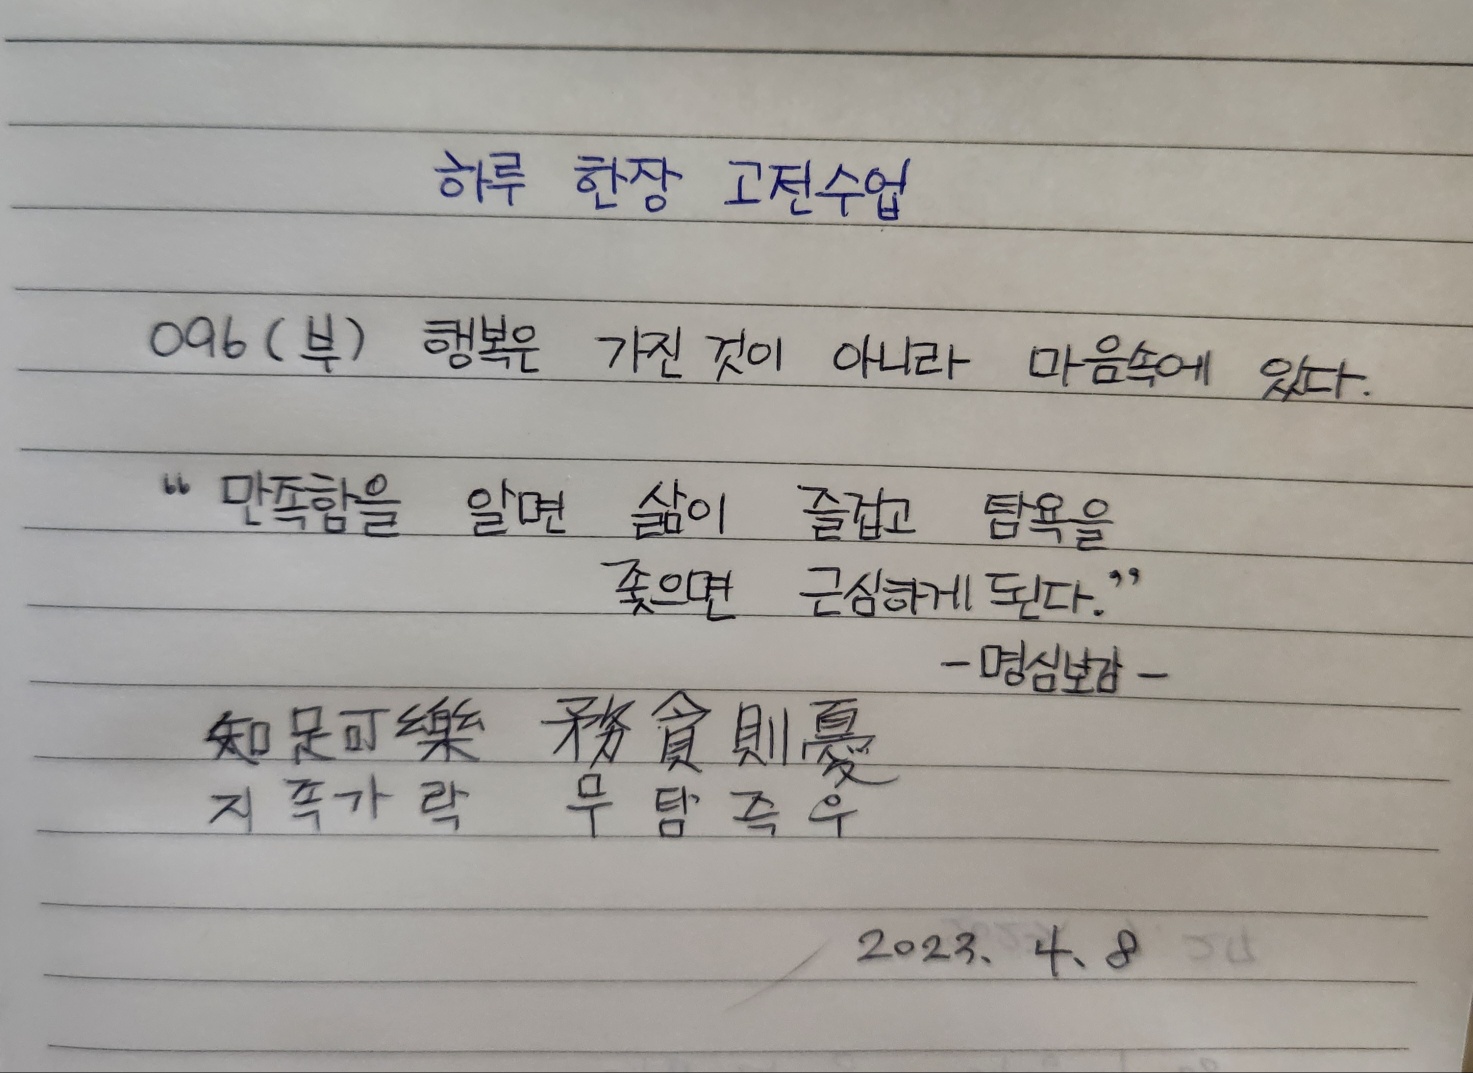 하루 한장 고전수업
096(부) 행복은 가진 것이 아니라 마음속에 있다.
“만족함을 알면 삶이 즐겁고 탐욕을
좇으면 근심하게 된다.”
-명심보감-
知足可樂 務貪則憂
지족가락 무탐즉우
2023. 4. 8